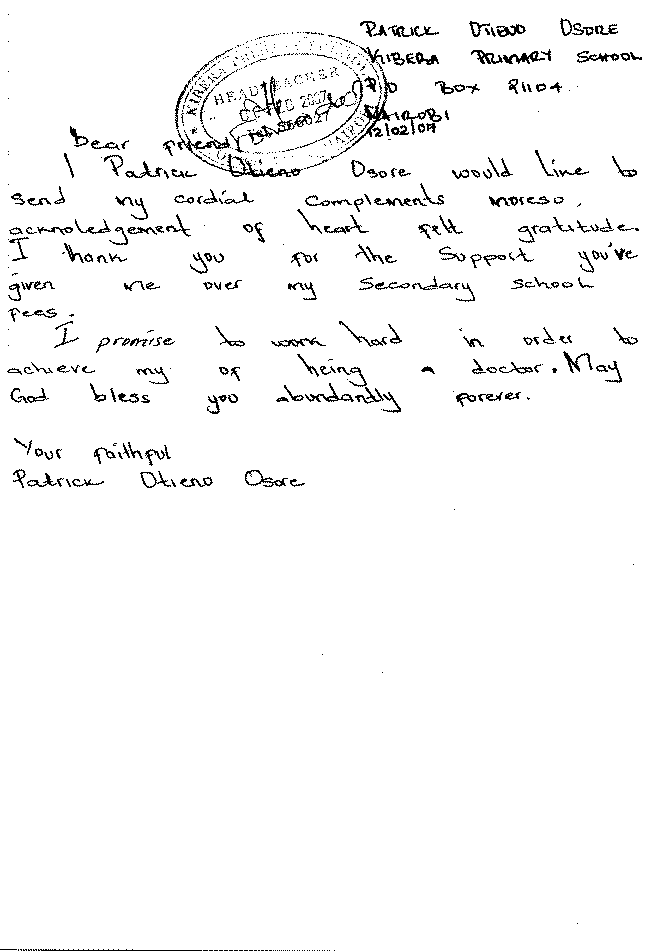 PATRICK OTIENO OSORE
KIBERA PRIMARY SCHOOL
P.O BOX 21104
NAIROBI
12/02/07
HEADTEACHER
Dear friend
I Patrick Otieno Osore would like to
send my cordial complements moreso,
acknoledgement of heart felt gratitude.
I thank you for the Support you've
given me over my Secondary school
fees.
I promise to work hard in order to
achieve my of being a doctor. May
God bless you abundantly forever.
Your faithful
Patrick Otieno Osore